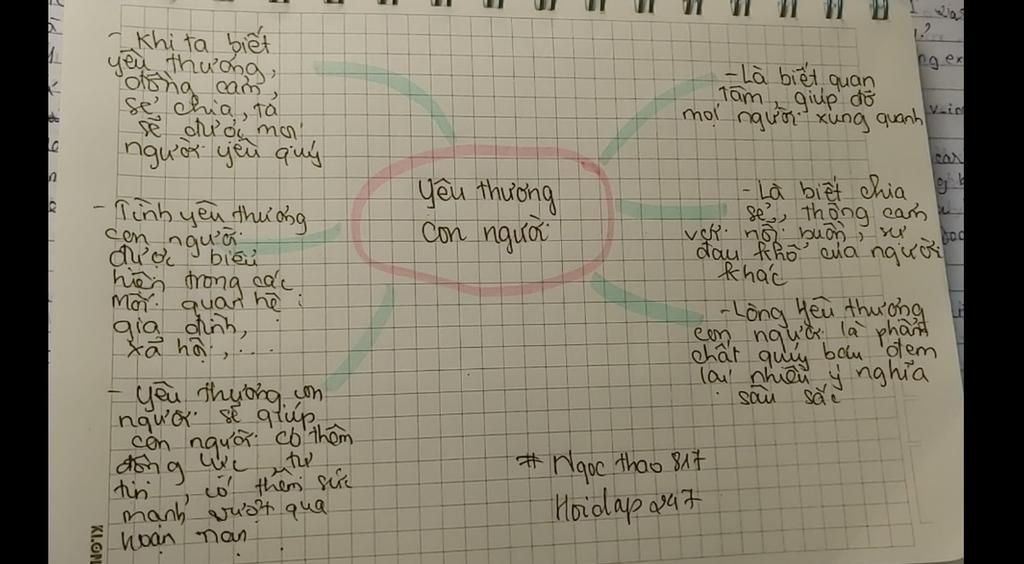 Yêu thương
con người
- Khi ta biết
yêu thương,
đồng cảm,
sẻ chia, ta
sẽ được mọi
người yêu quý
- Tình yêu thương
con người
được biểu
hiện trong các
mối quan hệ :
gia đình,
xã hội, ...
- Yêu thương con
người sẽ giúp
con người có thêm
động lực, tự
tin, có thêm sức
mạnh vượt qua
hoạn nạn.
- Là biết quan
tâm, giúp đỡ
mọi người xung quanh
- Là biết chia
sẻ, thông cảm
với nỗi buồn, sự
đau khổ của người
khác
- Lòng yêu thương
con người là phẩm
chất quý báu đem
lại nhiều ý nghĩa
sâu sắc
# Ngoc thao 817
Hoidap247